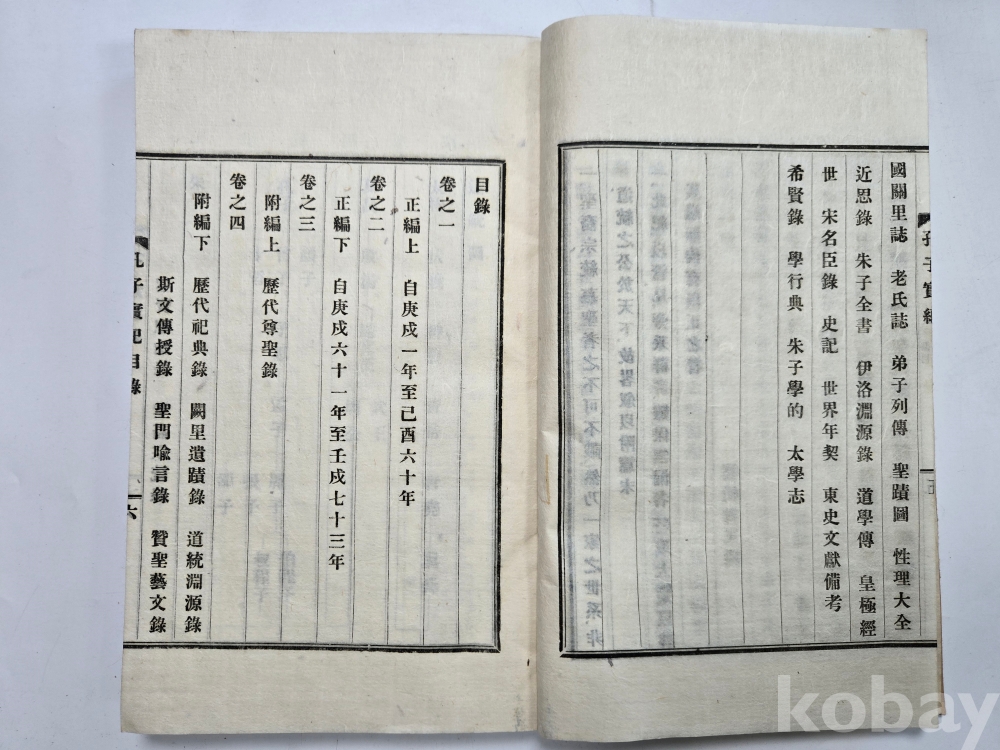 國關里誌 老氏誌 弟子列傳 聖蹟圖 性理大全
近思錄 朱子全書 伊洛淵源錄 道學傳 皇極經
世 宋名臣錄 史記 世界年契 東史文獻備考
希賢錄 學行典 朱子學的 太學志
目錄
卷之一
正編上 自庚戌一年至己酉六十年
卷之二
正編下 自庚戌六十一年至壬戌七十三年
卷之三
附編上 歷代尊聖錄
卷之四
附編下 歷代祀典錄 闕里遺蹟錄 道統淵源錄
斯文傳授錄 聖門喩言錄 贊聖藝文錄
孔子實紀目錄
六
kobay